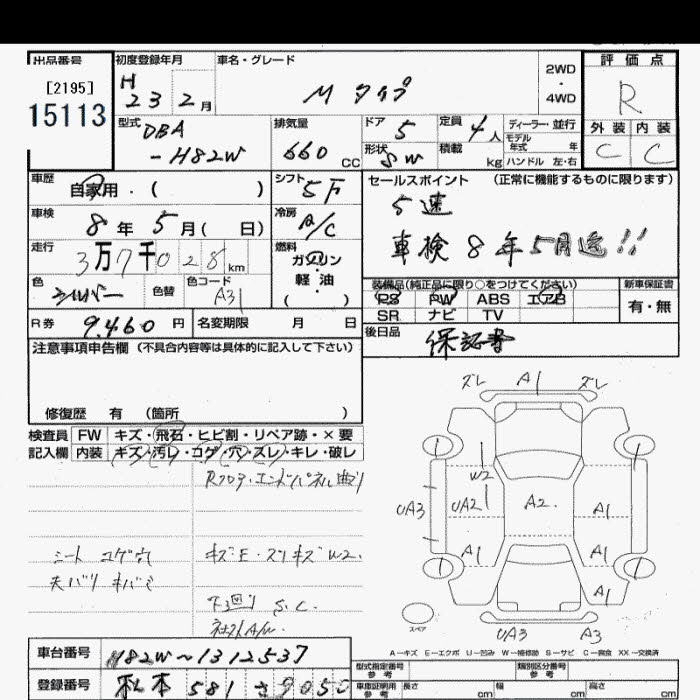 出品番号
[2195]
15113
初度登録年月
H 23 2月
車名・グレード
M タイプ
2WD
・
4WD
評価点
R
外装 内装
C C
型式
DBA
-H82W
排気量
660 CC
ドア 5
形状 SW
定員 4人
積載 kg
ディーラー・並行
モデル年式 年
ハンドル 左・右
車歴
自家用・( )
シフト 5F
セールスポイント (正常に機能するものに限ります)
5速
車検8年5月迄!!
車検
8年5月( 日)
冷房 A/C
走行
3万7千028km
燃料
ガソリン
軽・油
( )
色 シルバー
色替
色コード A31
装備品(純正品に限り○をつけてください)
PS PW ABS エアB
SR ナビ TV
新車保証書
有・無
R券 9,460円
名変期限 月 日
後日品
保証書
注意事項申告欄 (不具合内容等は具体的に記入して下さい)
修復歴 有 (箇所 )
検査員 FW キズ・飛石・ヒビ割・リペア跡・×要
記入欄 内装 キズ・汚レ・コゲ・穴・ズレ・キレ・破レ
Rフロア・エンドパネル曲り
シート コゲ穴
キズE・スリキズW2.
天バリ キバミ
下回り S.C.
社外A/W.
ズレ A1 ズレ
W2
UA3 UA2 A2. A1
A1 A1
A1
UA3 A3
スペア
A-キズ E-エクボ U-凹み W-補修跡 S-サビ C-腐食 XX-交換済
車台番号 H82W~1312537
登録番号 松本 581 さ 9050
型式指定番号 参考
類別区分番号 参考
車庫証明用 参考 長さ cm 幅 cm 高さ cm